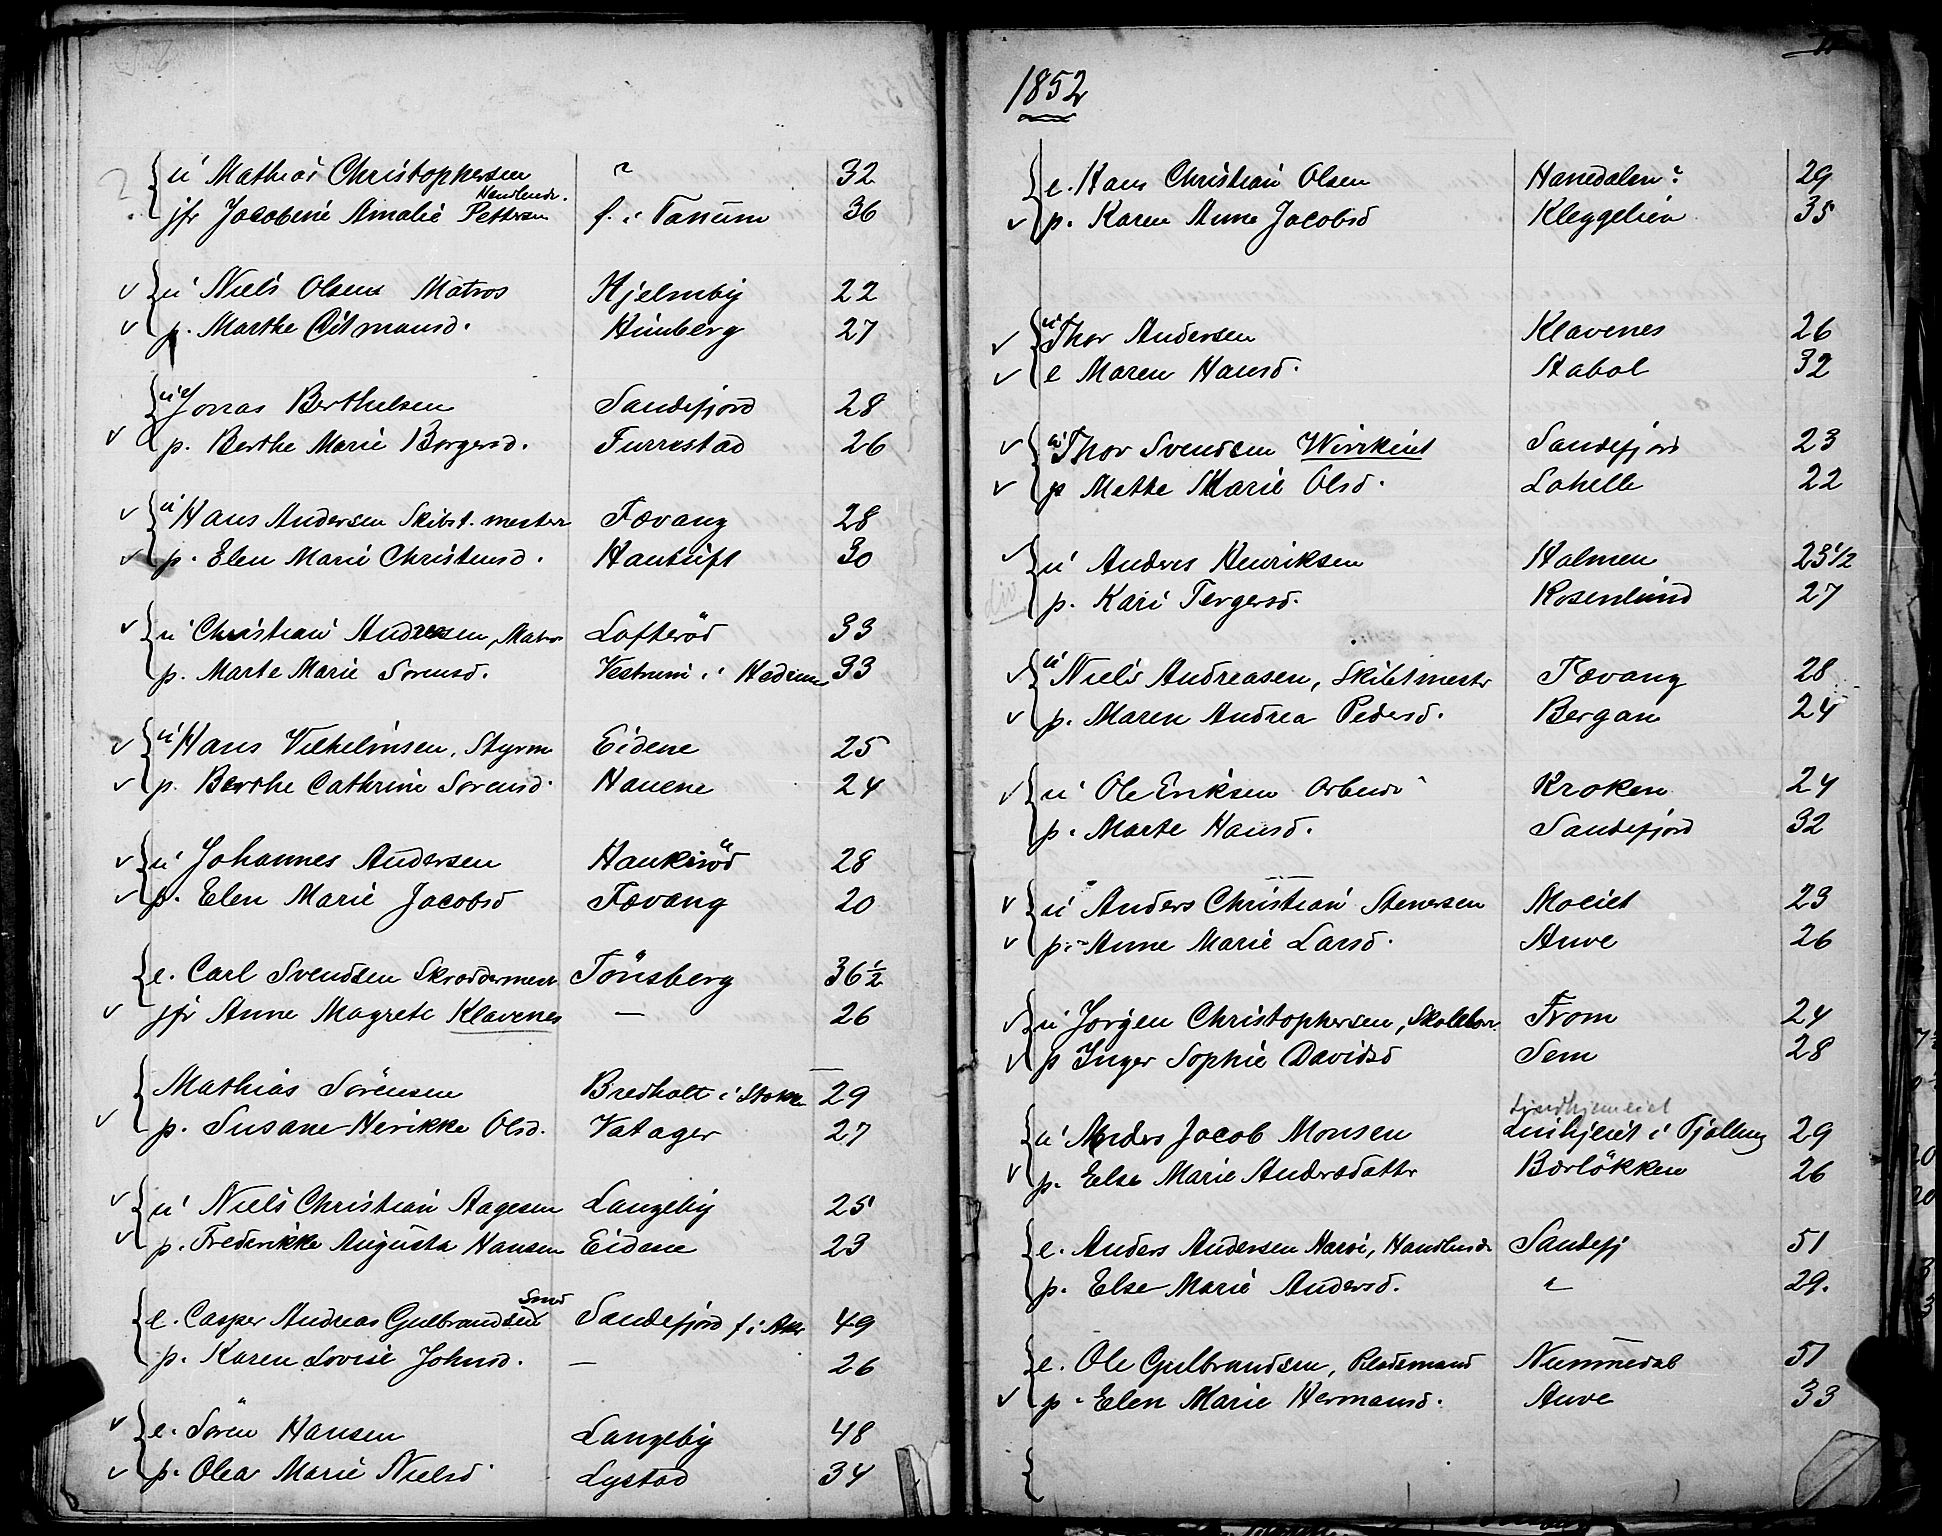 u Mathias Christophersen " 32
Handlende.
jfr Jacobine Amalie Pettersen f. i Tanum 36
u Niels Olsen Matros Hjelmby 22
p. Marthe Ditmansd. Himberg 27
u Jonas Berthelsen Sandefjord 28
p. Berthe Marie Borgersd. Furrestad 26
u Hans Andersen Skibst. mester Fævang 28
p. Elen Marie Christensd. 30
u Christian Andresen, Matros Lofterød 33
p. Marte Marie Sorensd. Vestrum i Hedrum 33
u Hans Vilhelmsen, Styrm Eidene 25
p. Berthe Cathrine Sorensd. Hauene 24
u Johannes Andersen Haukerød 28
p. Elen Marie Jacobsd Fævang 20
e. Carl Svendsen Skræddermest Tönsberg 36 1/2
jfr Anne Magrete Klavenes — 26
Mathias Sörensen Bredholt i Stokke 29
p. Susane Henrikke Olsd. Vatager 27
u Niels Christian Aagesen Langeby 25
p. Frederikke Augusta Hansen Eidene 23
Smed
e. Casper Andreas Gulbrandsen Sandefjord f i Aker 49
p. Karen Lovise Johnsd. — 26
e. Sören Hansen Langeby 48
p. Olea Marie Nielsd Lystad 34
1852
e. Hans Christian Olsen Hanedalen? 29
p. Karen Anne Jacobsd Kleggelien 35
u Thor Andersen Klavenes 26
e Maren Hansd. Stabol 32
u Thor Svendsen Virkeiet Sandefjord 23
p Mette Marie Olsd. Lahelle 22
u Anders Henriksen Holmen 23 1/2
p. Kari Tergersd. Rosenlund 27
u Niels Andreasen, Skibstmester Fævang 28
p. Maren Andrea Pedersd. Bergan 24
u Ole Eriksen Arbeid Kroken 24
p. Marte Hansd. Sandefjord 32
u Anders Christian Stenersen Moeiet 23
p. Anne Marie Larsd. Auve 26
u Jorgen Christophersen, Skolelær From 24
p Inger Sophie Davidsd Sem 28
Lindhjemeiet
u Anders Jacob Monsen Linhjeiet i Tjølling 29
p. Else Marie Andersdatter Bærlökken 26
e. Anders Andersen Narvi, Handlende Sandefj 51
p. Else Marie Andersd. " 29.
e. Ole Gulbrandsen, Pladsmand Nummedal 51
p. Elen Marie Hermansd. Auve 33